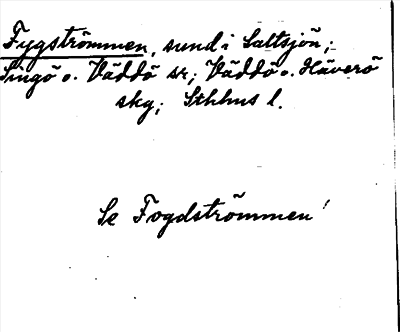 Fygströmmen, sund i Saltsjön;
Singö o. Väddö sr; Väddö o. Häverö
skg; Sthlms l.
Se Fogdströmmen!